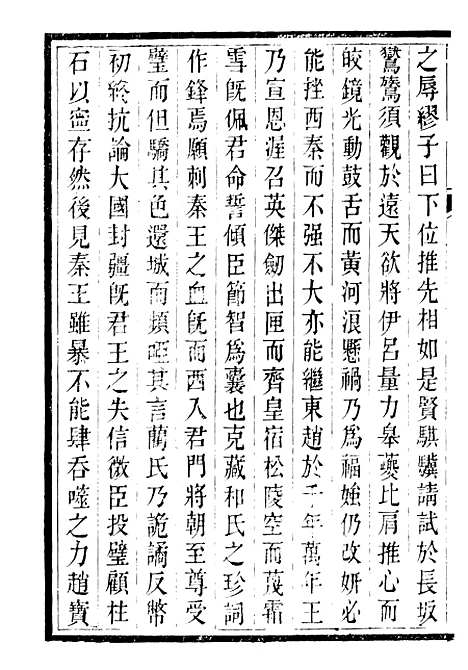 之辱繆子曰下位推先相如是賢騏驥請試於長坂
鸞鷟須觀於遠天欲將伊呂量力皋夔比肩推心而
皎鏡光動鼓舌而黃河浪懸禍乃爲福媸仍改妍必
能挫西秦而不强不大亦能繼東趙於千年萬年王
乃宣恩渥召英傑劒出匣而齊皇宿松陵空而蔑霜
雪旣佩君命誓傾臣節智爲囊也克藏和氏之珍詞
作鋒焉願刺秦王之血旣而西入君門將朝至尊受
璧而但驕其色還城而頻啞其言藺氏乃詭譎反幣
初終抗論大國封疆旣君王之失信微臣投璧顧柱
石以寧存然後見秦王雖暴不能肆吞噬之力趙寶